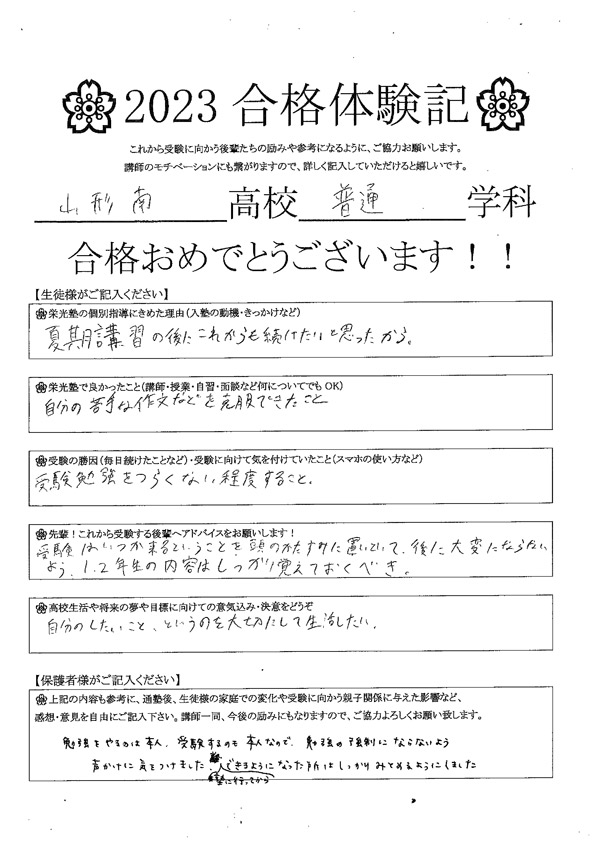 2023 合格体験記
これから受験に向かう後輩たちの励みや参考になるように、ご協力お願いします。
講師のモチベーションにも繋がりますので、詳しく記入していただけると嬉しいです。
山形南 高校 普通 学科
合格おめでとうございます！！
【生徒様がご記入ください】
栄光塾の個別指導にきめた理由（入塾の動機・きっかけなど）
夏期講習の後にこれからも続けたいと思ったから。
栄光塾で良かったこと（講師・授業・自習・面談など何についてでも OK）
自分の苦手な作文などを克服できたこと
受験の勝因（毎日続けたことなど）・受験に向けて気を付けていたこと（スマホの使い方など）
受験勉強をつらくない程度すること。
先輩！これから受験する後輩へアドバイスをお願いします！
受験はいつか来るということを頭のかたすみに置いといて、後に大変にならない
よう、1.2年生の内容はしっかり覚えておくべき。
高校生活や将来の夢や目標に向けての意気込み・決意をどうぞ
自分のしたいこと、というのを大切にして生活したい。
【保護者様がご記入ください】
上記の内容も参考に、通塾後、生徒様の家庭での変化や受験に向かう親子関係に与えた影響など、
感想・意見を自由にご記入下さい。講師一同、今後の励みにもなりますので、ご協力よろしくお願い致します。
勉強をやるのは本人、受験するのも本人なので、勉強の強制にならないよう
声かけに気をつけました。できるようになった所はしっかりみとめるようにしました
塾に行ってから